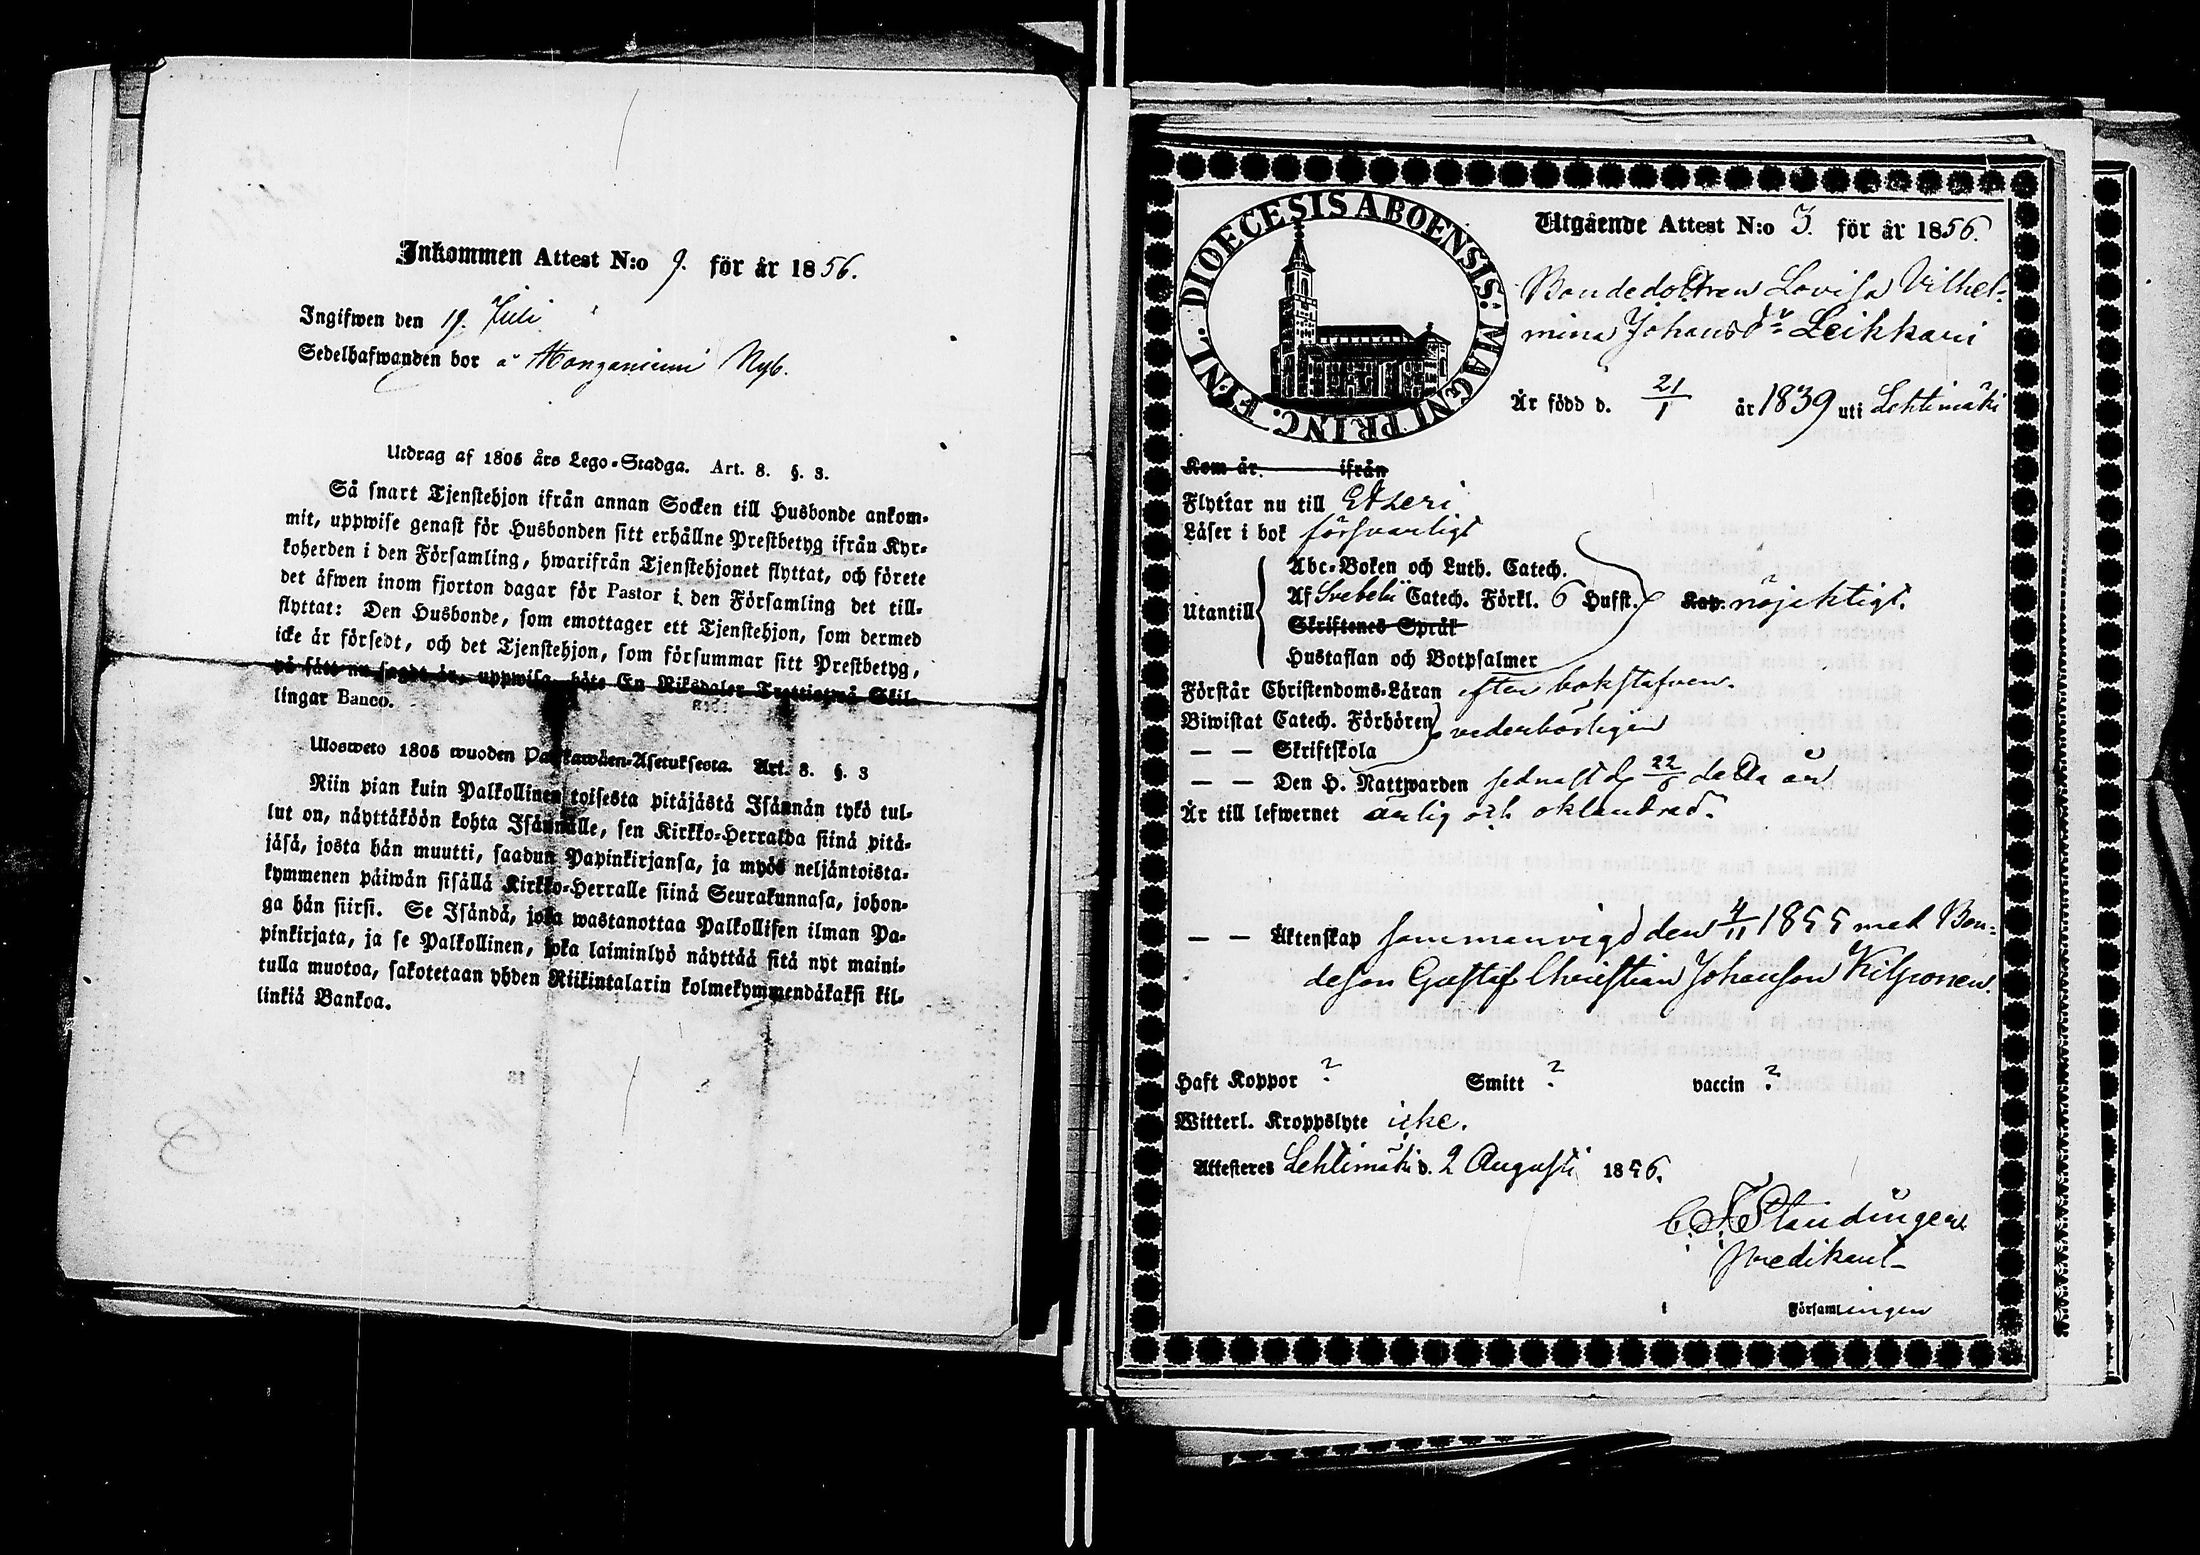 Inkommen Attest N:o 9. för år 1856.
Ingifwen den 19. Juli
Sedelhafwanden bor å Monganiemi Nyb.
Utdrag af 1805 års Lego-Stadga. Art. 8. §. 3.
Så snart Tjenstehjon ifrån annan Socken till Husbonde ankom-
mit, uppwise genast för Husbonden sitt erhållne Prestbetyg ifrån Kyr-
koherden i den Församling, hwarifrån Tjenstehjonet flyttat, och förete
det äfwen inom fjorton dagar för Pastor i den Församling det till-
flyttat: Den Husbonde, som emottager ett Tjenstehjon, som dermed
icke är försedt, och det Tjenstehjon, som försummar sitt Prestbetyg,
på sätt nu sagdt är, uppwisa, böte En Riksdaler Trettiotwå Skil-
lingar Banco.
Ulosweto 1805 wuoden Palkkawäen-Asetuksesta. Art. 8. §. 3
Niin pian kuin Palkollinen toisesta pitäjästä Isännän tykö tul-
lut on, näyttäköön kohta Isännälle, sen Kirkko-Herralda siinä pitä-
jäsä, josta hän muutti, saadun Papinkirjansa, ja myös neljäntoista-
kymmenen päiwän sisällä Kirkko-Herralle siinä Seurakunnasa, johon-
ga hän siirsi. Se Isändä, joka wastanottaa Palkollisen ilman Pa-
pinkirjata, ja se Palkollinen, joka laiminlyö näyttää sitä nyt maini-
tulla muotoa, sakotetaan yhden Riikintalarin kolmekymmendäkaksi kil-
linkiä Bankoa.
DIOECESIS ABOENSIS. MAGNI PRINC. FINL.
Utgående Attest N:o 3. för år 1856.
Bondedottren Lovisa Vilhel-
mina Johansdr Leikkari
Är född d. 21/1 år 1839 uti Lehtimäki
Kom år ifrån
Flyttar nu till Etseri
Läser i bok försvarligt
Abc-Boken och Luth. Catech.
Utantill Af Svebelii Catech. Förkl. 6 Hufst. Kap. nöjaktigt.
Skriftenes Språk
Hustaflan och Botpsalmer
Förstår Christendoms-Läran efter bokstafven.
Biwistat Catech. Förhören vederbörligen
— — Skriftskola
— — Den H. Nattwarden sednast d. 22/6 detta år
Är till lefwernet ärlig och oklandrad.
— — Äktenskap sammanvigd den 4/11 1855 med Bon-
deson Gustaf Christian Johanson Kilponen.
Haft Koppor ? Smitt ? vaccin ?
Witterl. Kroppslyte icke.
Attesteres Lehtimäki d. 2 Augusti 1856.
C. F. Standinger
Predikant
i Församlingen